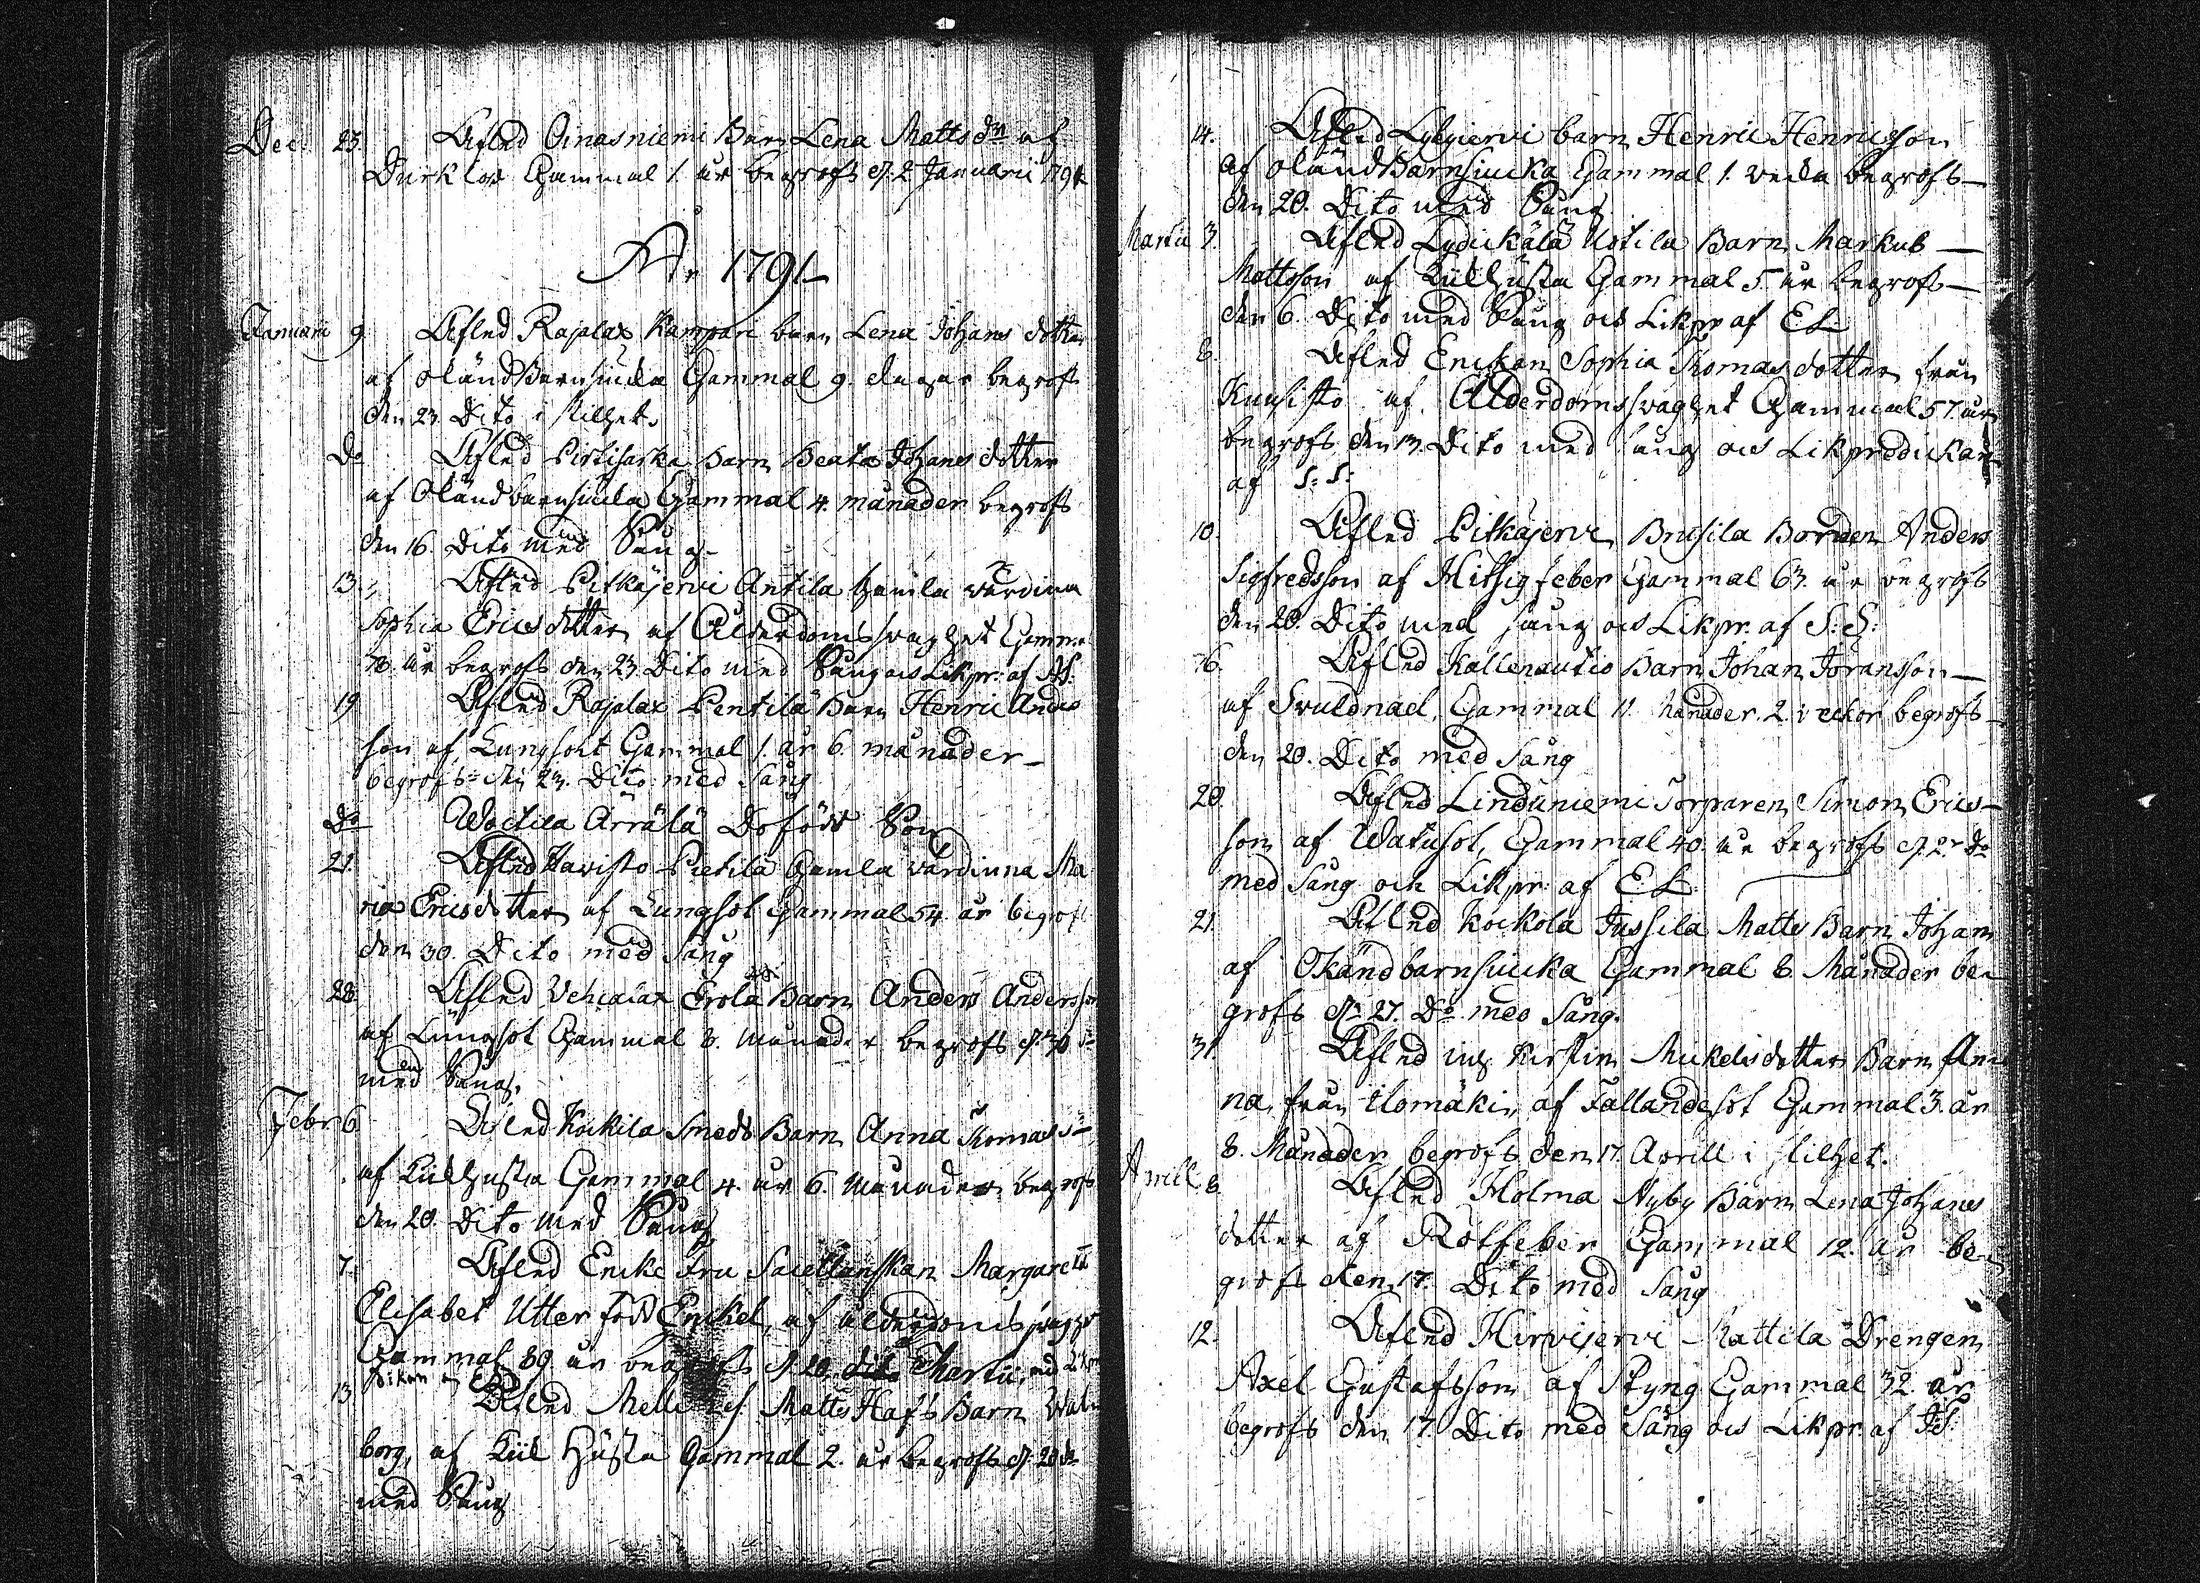 Dec. 23. Afled Oinasniemi Barn Lena Mattsdtr af
Gammal 1. år begrofs d. 2 Januarii 1791
Ådr 1791
Januarii 9. Afled Rajalax Kampari barn Lena Johans dotter
af okänd Barnsiucka Gammal 9. dagar begrofs
den 23 Dito i stillhet.
Do Afled Pirtisaska Barn Beata Johans dotter
af Okänd barnsiucka Gammal 4. månader begrofs
den 16. Dito med Sång.
13. Afled Pitkäjervi Antila Gamla värdinna
Sophia Ericsdotter af Ålderdomsswaghet Gammal
78. år begrofs den 23 Dito med Sång och Likpr. af
19 Afled Rajalax Pentilä Barn Henric Anders
son af Lungsot Gammal 1. år 6. månader
begrofs den 23. Dito med Sång
Do Ärrälä Dödfödd Son
21. Afled Kavisto Pietilä Gamla värdinna Ma
ria Ericsdotter af Lungsot Gammal 54. år begrofs
den 30. Dito med Sång
28. Afled Erola Barn Anders Andersson
af Lungsot Gammal 8. månader begrofs d. 30 do
med Sång.
Febr. 6 Afled Kockila Smeds Barn Anna Thomas dr
af Kikhosta Gammal 4. år 6. månader begrofs
den 20. Dito med Sång
7. Afled Encke Fru Margareta
Elisabet Utter född Enckel, af ålderdomsswaghet
Gammal 89 år begrofs d. 20. Martii, med Likpre
dikan af
13 Afled Matts Hafs Barn Wal
borg, af Kik Hosta Gammal 2. år begrofs d. 20 do
med Sång
14. Afled Barn Henric Henricsson
af okänd Barnsiucka Gammal 1. vecka begrofs
den 20. Dito med Sång
Martii 3. Afled Lydickälä Uotila Barn Markus
Mattsson af Kikhosta Gammal 5. år begrofs
den 6. Dito med Sång och Likpr af E L
8. Afled Enckan Sophia Thomasdotter från
Kuusisto af Ålderdomsswaghet Gammal 57. år
begrofs den 13. Dito med sång och Likpredickan
af S: S:
10. Afled Pitkäjervi Brusila Bonden Anders
Sigfredsson af Hitsigfeber Gammal 63. år begrofs
den 20. Dito med sång och Likpr. af S: S:
Afled Kallenautio Barn Johan Joransson
af Gammal 11. Månader 2. veckor begrofs
den 20. Dito med Sång
20. Afled Linduniemi Torparen Simon Erics
son af Watusot, Gammal 40. år begrofs d. 2 do
med Sång och Likpr. af E. L.
21. Afled Kockola Jussila Matts Barn Johan
af Okänd barnsiucka Gammal 8. Månader be
grofs d. 27. Do med Sång.
31 Afled Kirstin Mickelsdotter Barn An
na, från Ilomäki, af Fallandesot Gammal 3. år
8. Månader begrofs den 17. Aprill i stillhet.
Aprill 8. Afled Holma Nyby Barn Lena Johans
dotter af Rötfeber Gammal 12. år be
grofs den 17. Dito med Sång
12. Afled Hirvijervi Mattila Drengen
Axel Gustafsson af Styng Gammal 32. år
begrofs den 17. Dito med Sång och Likpr. af